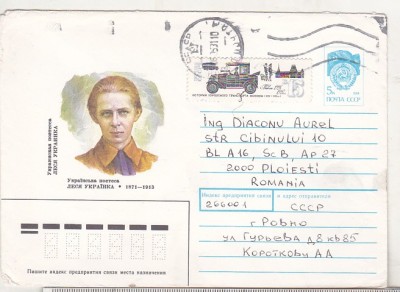 5к
ПОЧТА СССР
ИСТОРИЯ ГОРОДСКОГО ТРАНСПОРТА МОСКВЫ
15
Українська поетеса
ЛЕСЯ УКРАЇНКА • 1871–1913
Украинская поэтесса
ЛЕСЯ УКРАИНКА
Ing DIACONU AUREL
STR CIBINULUI 10
BL A16, Sc B, Ap 27
2000 PLOIESTI
ROMANIA
Индекс предприятия связи и адрес отправителя
266001
СССР
г Ровно
ул Гурьева д 8 кв 85
Короткову АА
Пишите индекс предприятия связи места назначения